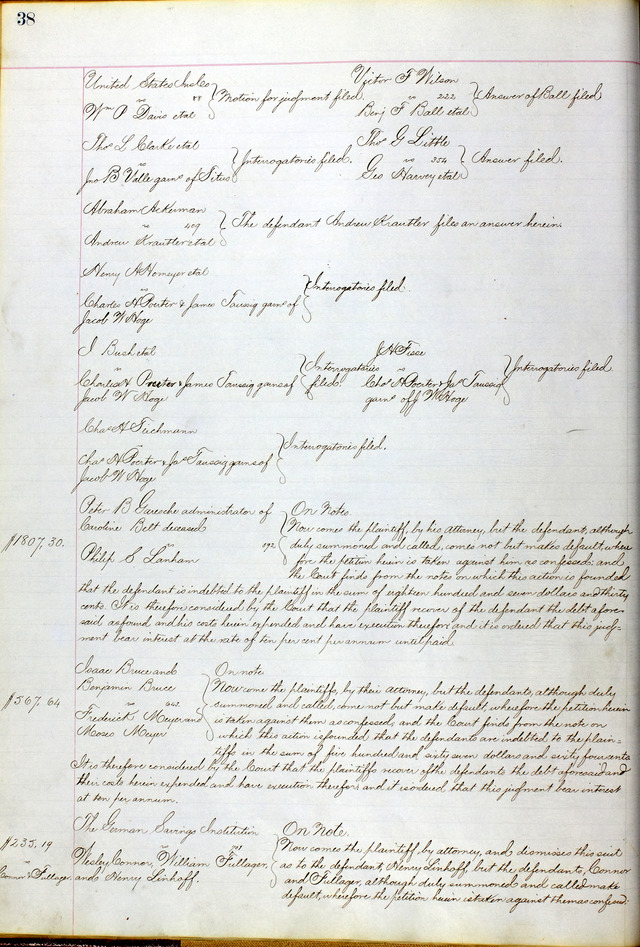 38
United States Ins Co
vs
Wm P Davis etal
Motion for judgment filed.
Victor F Wilson
vs 222
Benj F Ball etal
Answer of Ball filed
Thos L Clarke etal
vs
Jno B Valle garne of Titus
Interrogatories filed.
Thos G Little
vs 354
Geo Harvey etal
Answer filed.
Abraham Ackerman
vs 409
Andrew Krautler etal
The defendant Andrew Krautler files an answer herein.
Henry A Homeyer etal
vs
Charles H Porter & James Taussig garns of
Jacob W Hoge
Interrogatories filed.
I Bush etal
vs
Charles H Porter & James Taussig garns of
Jacob W Hoge
Interrogatories
filed.
J H Fisse
vs
Chas H Porter & Jas Taussig
garns of J W Hoge
Interrogatories filed
Chas H Tiechmann
vs
Chas H Porter & Jas Taussig garns of
Jacob W Hoge
Interrogatories filed.
$1807,30.
Peter B Garesche administrator of
Caroline Belt deceased
vs 592
Philip S Lanham
On Note.
Now comes the plaintiff, by his attorney, but the defendant, although
duly summoned and called, comes not but makes default, where
fore the petition herein is taken against him as confessed; and
the Court finds from the notes on which this action is founded
that the defendant is indebted to the plaintiff in the sum of eighteen hundred and seven dollars and thirty
cents. It is therefore considered by the Court that the plaintiff recover of the defendant the debt afore-
said as found and his costs herein expended and have execution therefor; and it is ordered that this judg-
ment bear interest at the rate of ten per cent per annum until paid.
$567.64
Isaac Bruce and
Benjamin Bruce
vs
Frederick Meyer and
Moses Meyer
On note
Now come the plaintiffs, by their attorney, but the defendants, although duly
summoned and called, come not but make default, wherefore the petition herein
is taken against them as confessed, and the Court finds from the note on
which this action is founded, that the defendants are indebted to the plain-
tiffs in the sum of five hundred and sixty seven dollars and sixty four cents
It is therefore considered by the Court that the plaintiffs recover of the defendants the debt aforesaid and
their costs herein expended and have execution therefor; and it is ordered that this judgment bear interest
at ten per annum.
$235.19
Connor & Fullager.
The German Savings Institution
vs
Wesley Connor, William Fullager,
and Henry Linhoff.
On Note.
Now comes the plaintiff, by attorney, and dismisses this suit
as to the defendant, Henry Linhoff, but the defendants, Connor
and Fullager, although duly summoned and called make
default, wherefore the petition herein is taken against them as confessed